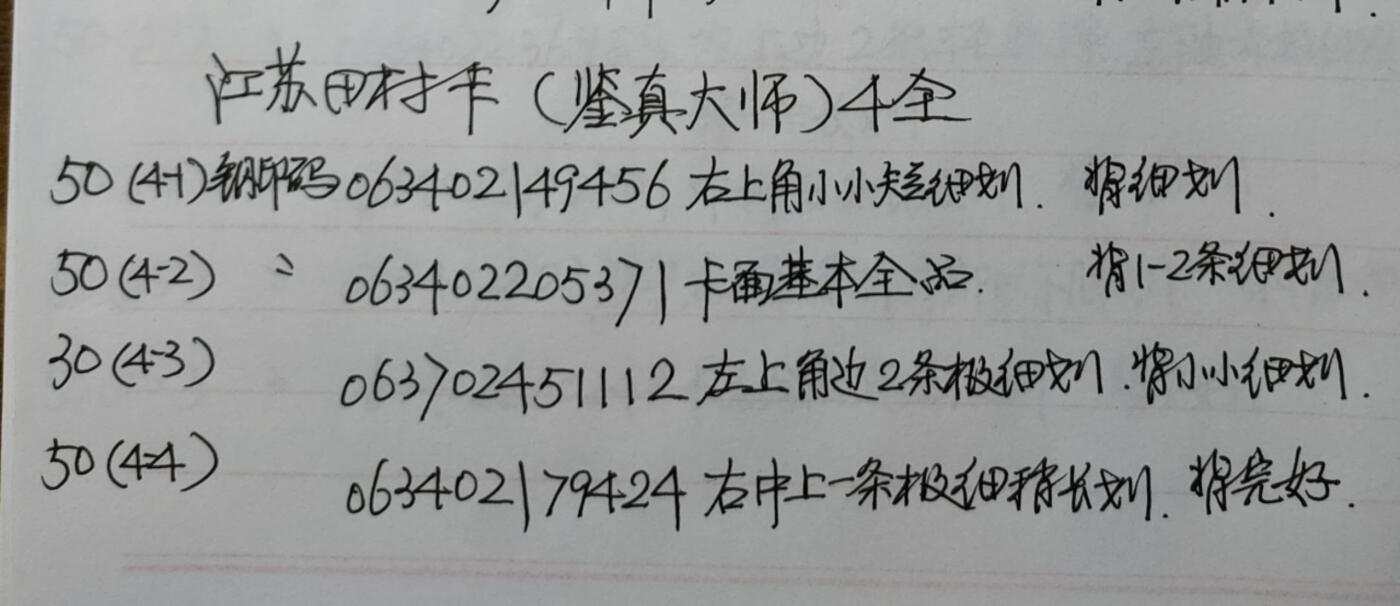 江苏田村卡（鉴真大师）4全
50(4-1)钢印码063402149456右上角小小短细划. 背细划.
50(4-2) 〃 063402205371卡面基本全品. 背1-2条细划.
30(4-3) 063702451112左上角边2条极细划.背小小细划.
50(4-4) 063402179424右中上一条极细稍长划. 背完好.